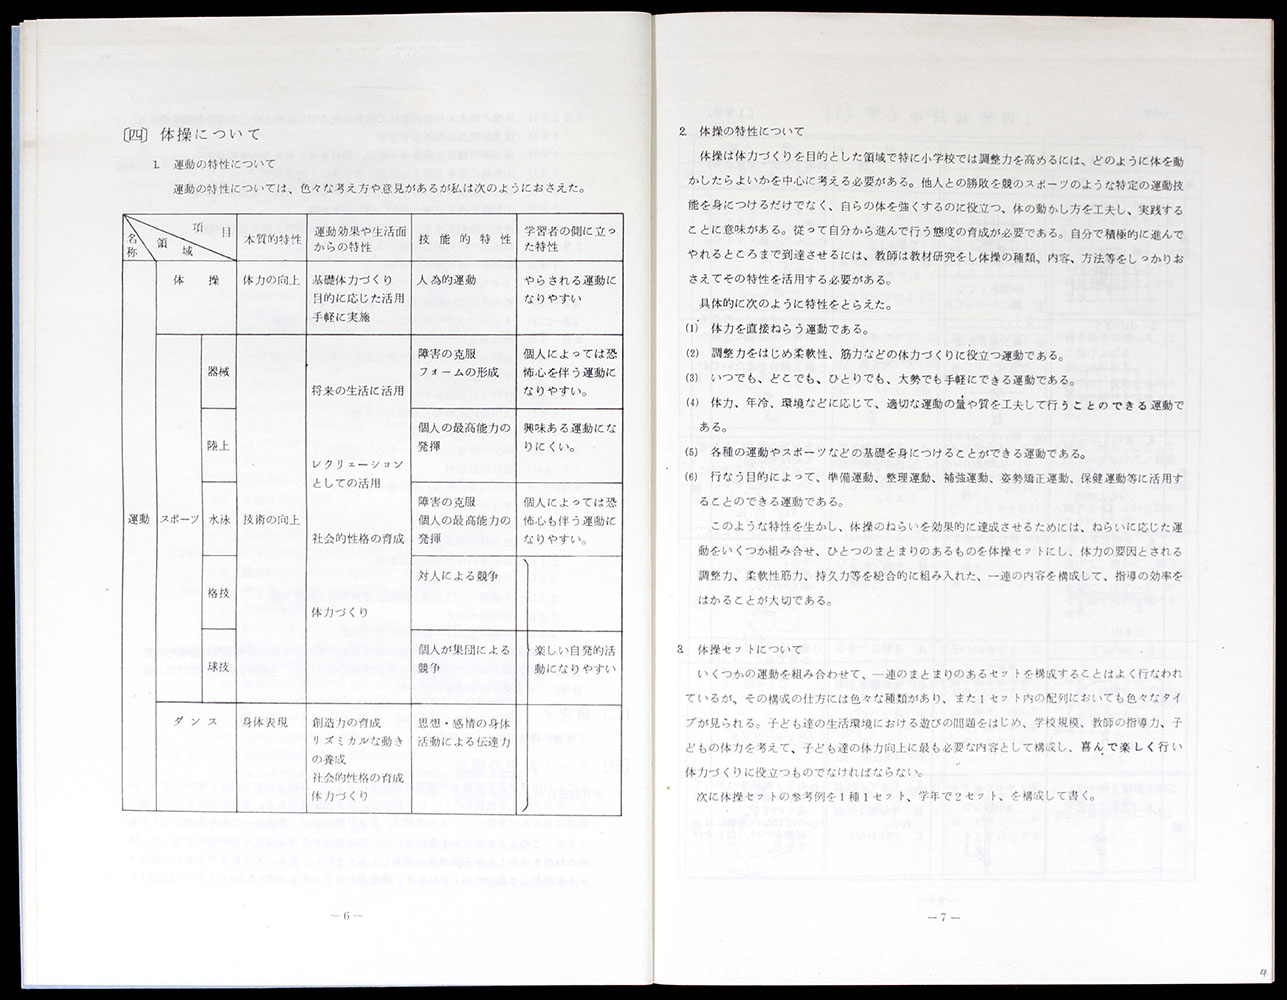 〔四〕 体操について
1. 運動の特性について
運動の特性については、色々な考え方や意見があるが私は次のようにおさえた。
名称
項目
領域
本質的特性
運動効果や生活面
からの特性
技能的特性
学習者の側に立っ
た特性
運動
体操
体力の向上
基礎体力づくり
目的に応じた活用
手軽に実施
人為的運動
やらされる運動に
なりやすい
スポーツ
技術の向上
器械
陸上
水泳
格技
球技
将来の生活に活用
レクリェーション
としての活用
社会的性格の育成
体力づくり
障害の克服
フォームの形成
個人によっては恐
怖心を伴う運動に
なりやすい。
個人の最高能力の
発揮
興味ある運動にな
りにくい。
障害の克服
個人の最高能力の
発揮
個人によっては恐
怖心も伴う運動に
なりやすい。
対人による競争
個人が集団による
競争
楽しい自発的活
動になりやすい
ダンス
身体表現
創造力の育成
リズミカルな動き
の養成
社会的性格の育成
体力づくり
思想・感情の身体
活動による伝達力
—6—
2. 体操の特性について
体操は体力づくりを目的とした領域で特に小学校では調整力を高めるには、どのように体を動
かしたらよいかを中心に考える必要がある。他人との勝敗を競のスポーツのような特定の運動技
能を身につけるだけでなく、自らの体を強くするのに役立つ、体の動かし方を工夫し、実践する
ことに意味がある。従って自分から進んで行う態度の育成が必要である。自分で積極的に進んで
やれるところまで到達させるには、教師は教材研究をし体操の種類、内容、方法等をしっかりお
さえてその特性を活用する必要がある。
具体的に次のように特性をとらえた。
(1) 体力を直接ねらう運動である。
(2) 調整力をはじめ柔軟性、筋力などの体力づくりに役立つ運動である。
(3) いつでも、どこでも、ひとりでも、大勢でも手軽にできる運動である。
(4) 体力、年冷、環境などに応じて、適切な運動の量や質を工夫して行うことのできる運動で
ある。
(5) 各種の運動やスポーツなどの基礎を身につけることができる運動である。
(6) 行なう目的によって、準備運動、整理運動、補強運動、姿勢矯正運動、保健運動等に活用す
ることのできる運動である。
このような特性を生かし、体操のねらいを効果的に達成させるためには、ねらいに応じた運
動をいくつか組み合せ、ひとつのまとまりのあるものを体操セットにし、体力の要因とされる
調整力、柔軟性筋力、持久力等を総合的に組み入れた、一連の内容を構成して、指導の効率を
はかることが大切である。
3. 体操セットについて
いくつかの運動を組み合わせて、一連のまとまりのあるセットを構成することはよく行なわれ
ているが、その構成の仕方には色々な種類があり、また1セット内の配列においても色々なタイ
プが見られる。子ども達の生活環境における遊びの問題をはじめ、学校規模、教師の指導力、子
どもの体力を考えて、子ども達の体力向上に最も必要な内容として構成し、喜んで楽しく行い
体力づくりに役立つものでなければならない。
次に体操セットの参考例を1種1セット、学年で2セット、を構成して書く。
—7—
4